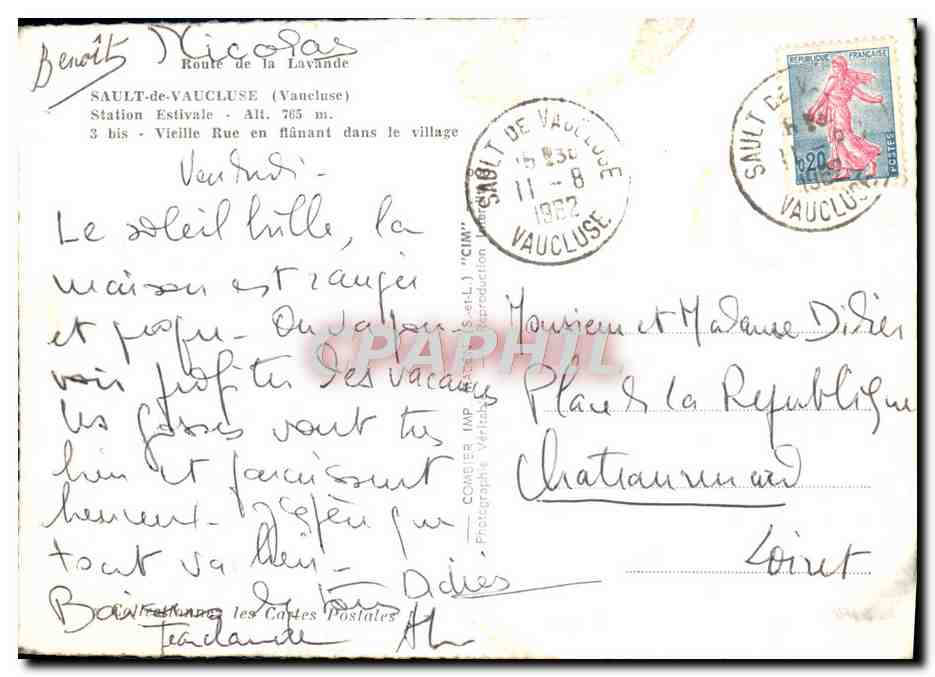 Benoît Nicolas
Route de la Lavande
SAULT-de-VAUCLUSE (Vaucluse)
Station Estivale - Alt. 765 m.
3 bis - Vieille Rue en flânant dans le village
Vendredi -
Le soleil brille, la
maison est rangée
et propre - On va pou-
voir profiter des vacances
Les gosses vont très
bien et paraissent
heureux - J'espère que
tout va bien -
Baisers de tous Didier
Jean Claude
Collectionnez les Cartes Postales
COMBIER IMP. MACON (S.-et-L.) "CIM"
Photographie Véritable - Reproduction Interdite
CPAPHIL
SAULT DE VAUCLUSE
11 - 8
1962
VAUCLUSE
SAULT DE VAUCLUSE
11 - 8
1962
VAUCLUSE
REPUBLIQUE FRANÇAISE
0,20
POSTES
Monsieur et Madame Didier
Place de la République
Loiret